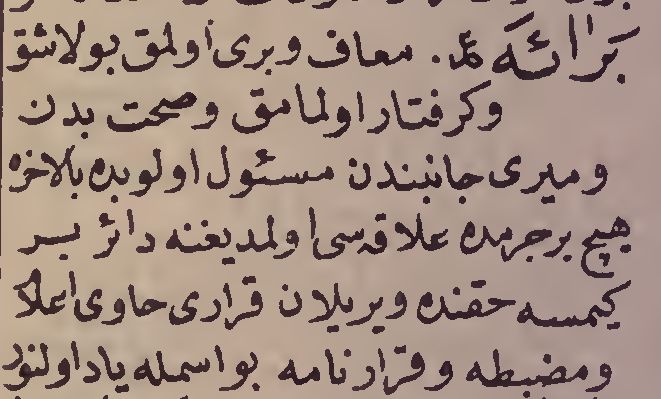 برائه ع. معاف و برى اولمق بولاشق
وكرفتار اولمامق وصحت بدن
وميرى جانبندن مسئول اولوبده بالاخره
هيچ برجرمده علاقه‌سى اولمديغنه دائر بر
كيمسه حقنده ويريلان قرارى حاوى اعلام
ومضبطه وقرارنامه بواسمله ياد اولنور